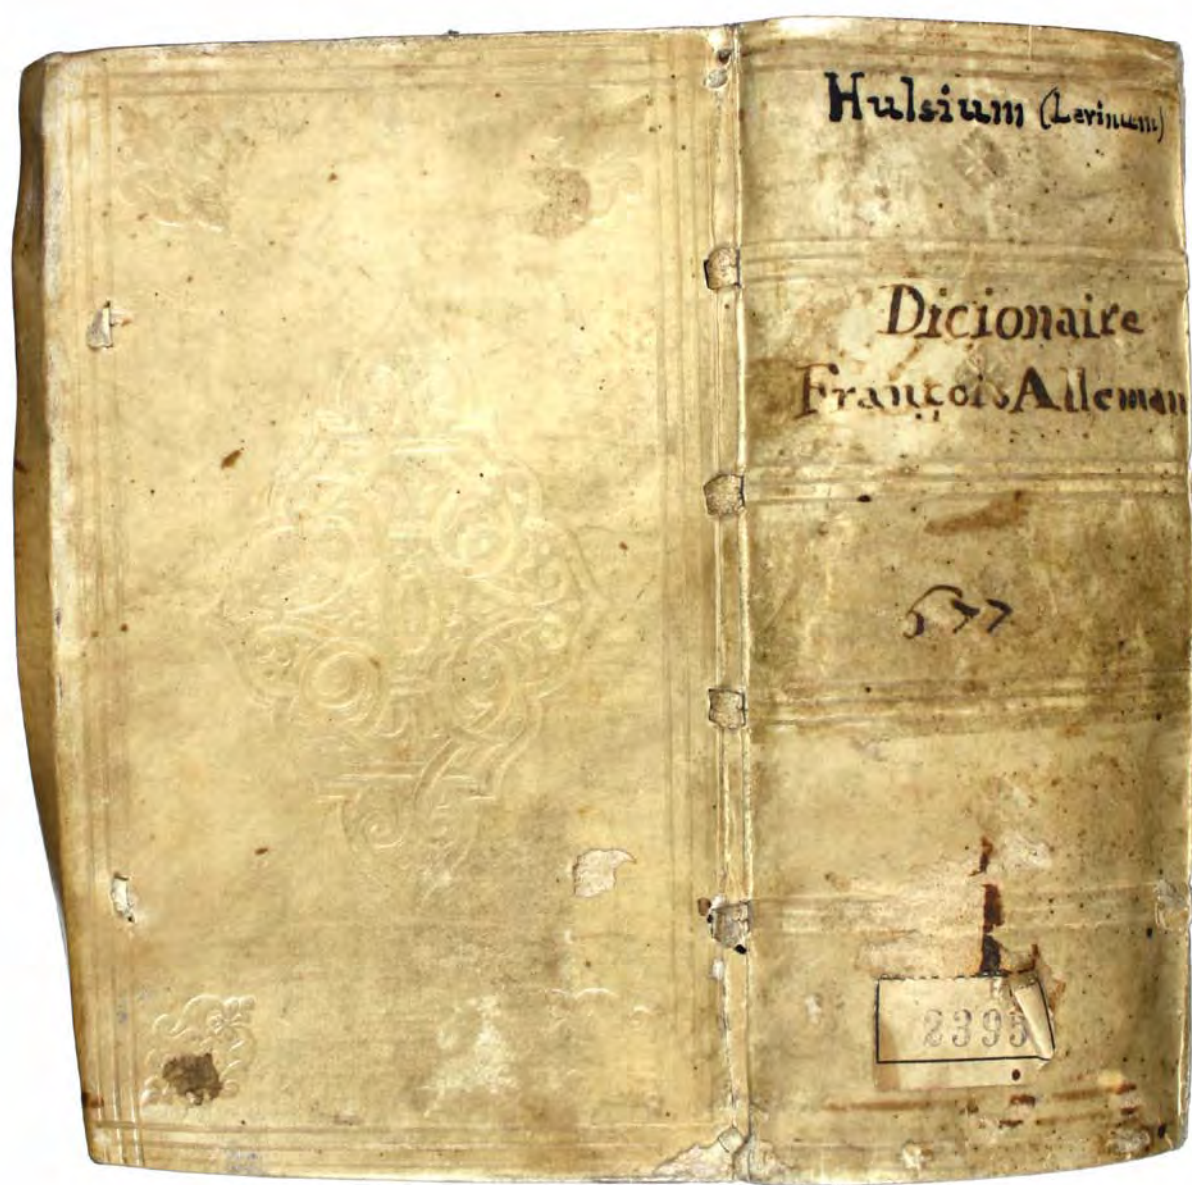 Hulsium (Levinum)
Dicionaire
François Alleman
677
2395